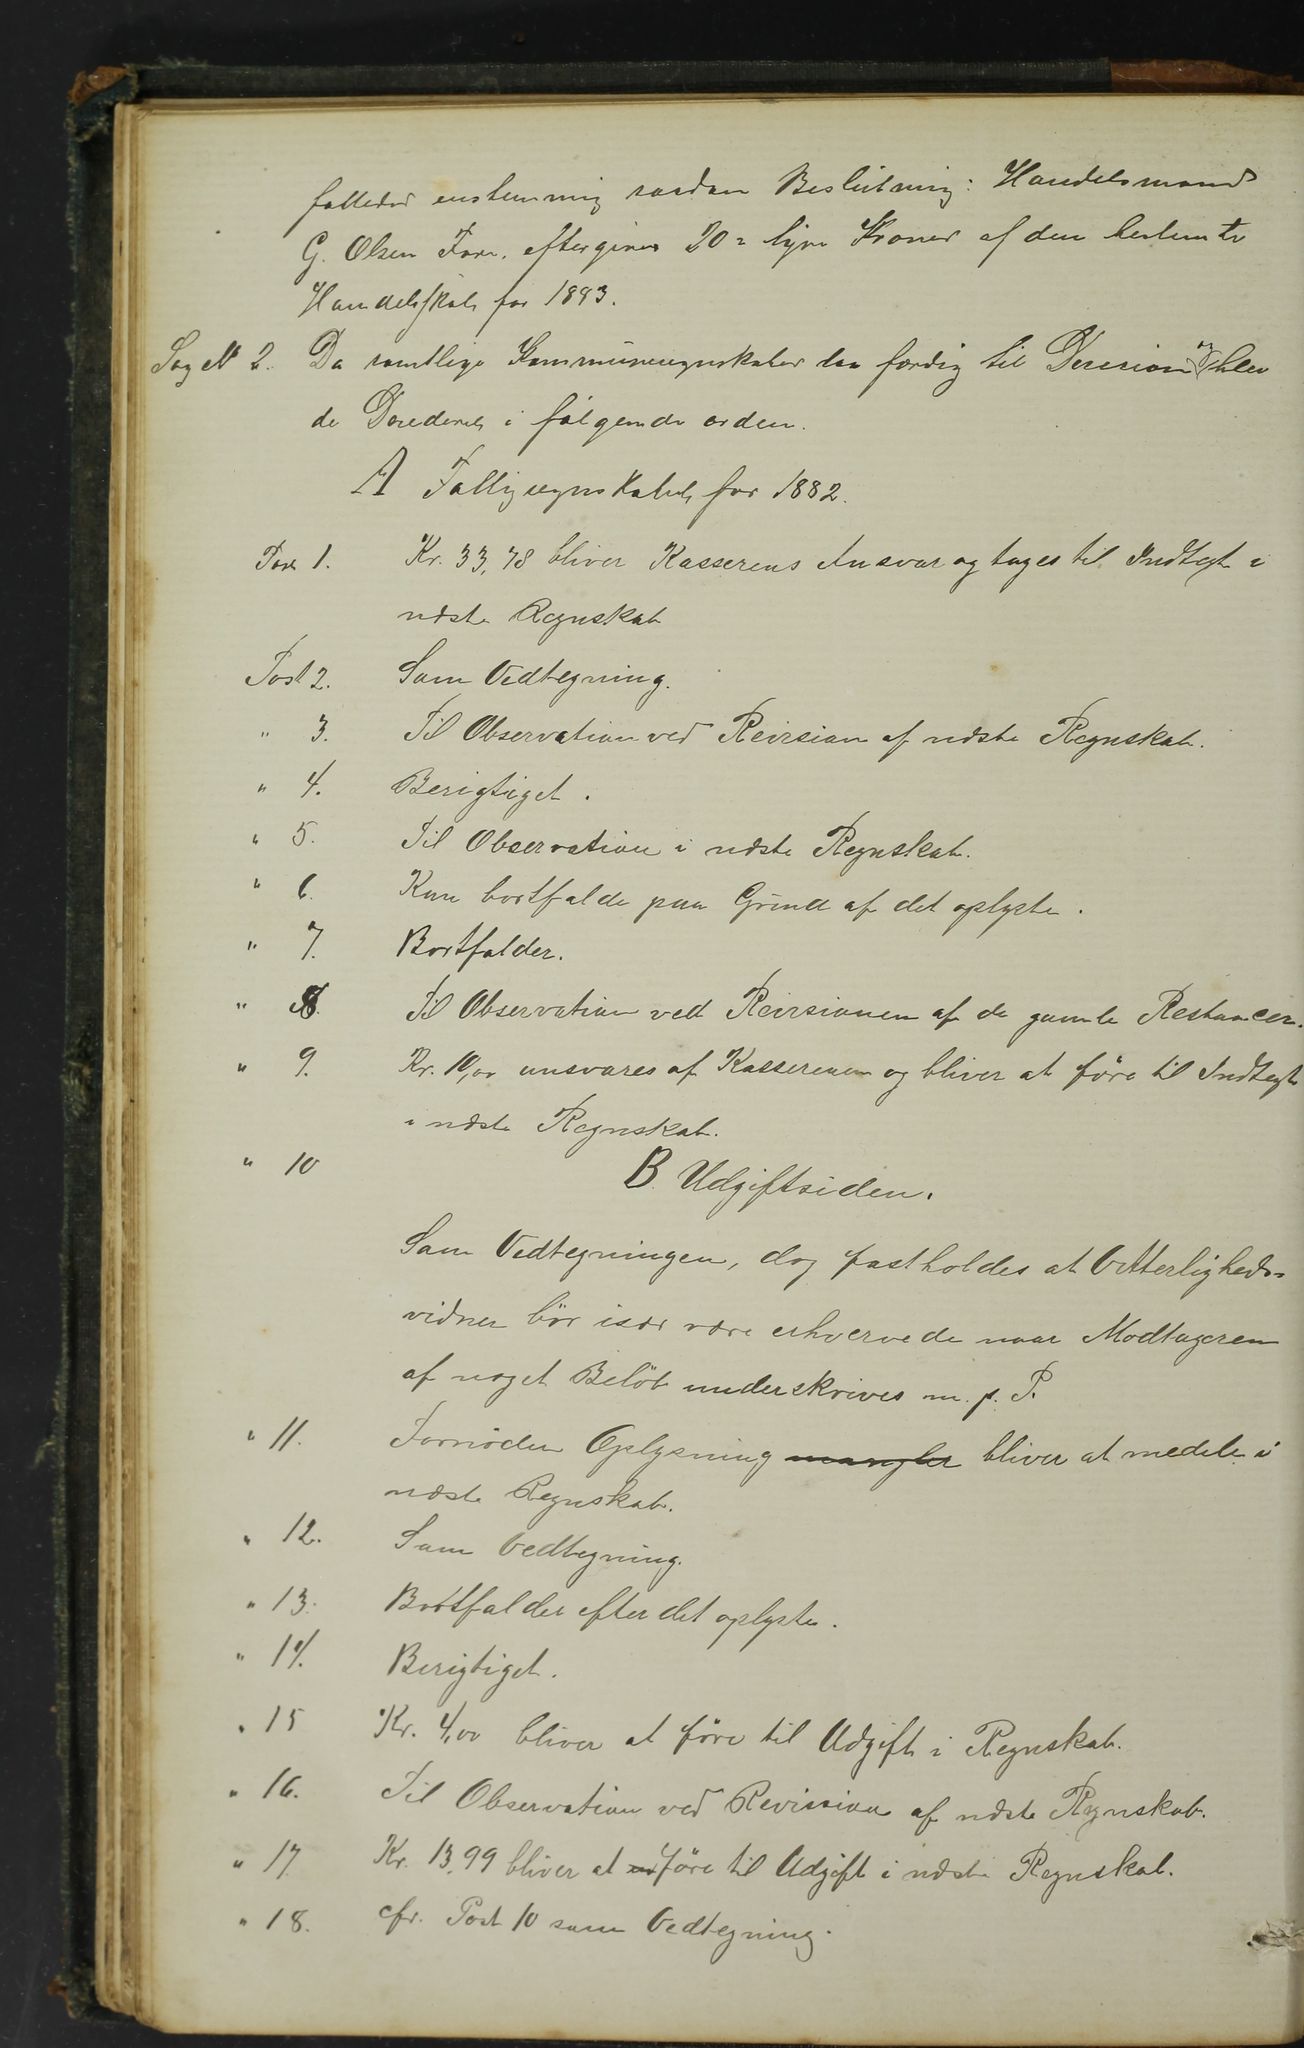 fattedes enstemmig saadan Beslutning: Handelsmand
G. Olsen Fore, eftergives 20 = tyve Kroner af den bestemte
Handelsskat for 1893.
Sag № 2. Da samtlige Kommuneregnskaber laa færdig til Decision og blev
de Decideret i følgende orden.
A Fattigregnskabet for 1882.
Post 1. Kr. 33,78 bliver Kasserens Ansvar og tages til Indtegt i
næste Regnskab
Post 2. Som Vedtegning.
" 3. Til Observation ved Revision af næste Regnskab.
" 4. Berigtiget.
" 5. Til Observation i næste Regnskab.
" 6. Kan bortfalde paa Grund af det oplyste.
" 7. Bortfalder.
" 8. Til Observation ved Revisionen af de gamle Restancer.
" 9. Kr. 10,00 ansvares af Kassereren og bliver at føre til Indtegt
i næste Regnskab.
" 10 B. Udgiftsiden.
Som Vedtegningen, dog fastholdes at Vitterligheds=
vidner bør især være erhvervede naar Modtageren
af noget Beløb underskrives m. p. P.
" 11. Fornøden Oplysning mangler bliver at medele i
næste Regnskab.
" 12. Som Vedtegning.
" 13. Bortfalder efter det oplyste.
" 14. Berigtiget.
" 15 Kr. 4,00 bliver at føre til Udgift i Regnskab.
" 16. Til Observation ved Revision af næste Regnskab.
" 17 Kr. 13,99 bliver at føre til Udgift i næste Regnskab.
" 18. cfr. Post 10 som Vedtegning.